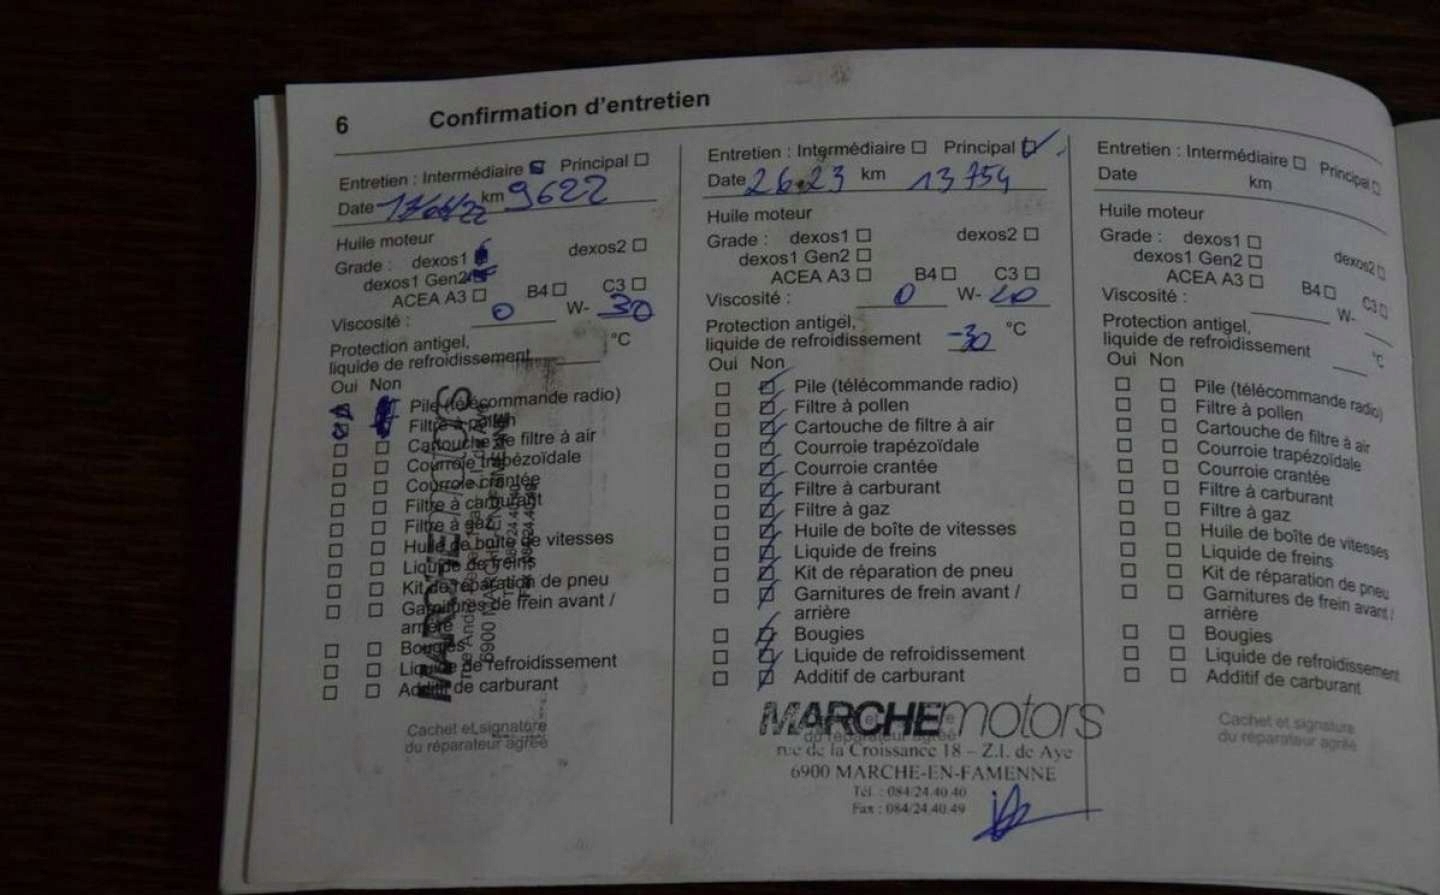 6 Confirmation d'entretien
Entretien : Intermédiaire Principal
Date km 9622
Huile moteur
Grade : dexos1 dexos2
dexos1 Gen2
ACEA A3 B4 C3
Viscosité : 0 W- 30
Protection antigel,
liquide de refroidissement °C
Oui Non
Pile (télécommande radio)
Filtre à pollen
Cartouche de filtre à air
Courroie trapézoïdale
Courroie crantée
Filtre à carburant
Filtre à gaz
Huile de boîte de vitesses
Liquide de freins
Kit de réparation de pneu
Garnitures de frein avant /
arrière
Bougies
Liquide de refroidissement
Additif de carburant
Cachet et signature
du réparateur agréé
Entretien : Intermédiaire Principal
Date 26.23 km 13754
Huile moteur
Grade : dexos1 dexos2
dexos1 Gen2
ACEA A3 B4 C3
Viscosité : 0 W- 20
Protection antigel,
liquide de refroidissement -30 °C
Oui Non
Pile (télécommande radio)
Filtre à pollen
Cartouche de filtre à air
Courroie trapézoïdale
Courroie crantée
Filtre à carburant
Filtre à gaz
Huile de boîte de vitesses
Liquide de freins
Kit de réparation de pneu
Garnitures de frein avant /
arrière
Bougies
Liquide de refroidissement
Additif de carburant
MARCHEmotors
du réparateur agréé
rue de la Croissance 18 – Z.I. de Aye
6900 MARCHE-EN-FAMENNE
Tél. : 084/24.40.40
Fax : 084/24.40.49
Entretien : Intermédiaire Principal
Date km
Huile moteur
Grade : dexos1 dexos2
dexos1 Gen2
ACEA A3 B4 C3
Viscosité : W-
Protection antigel,
liquide de refroidissement °C
Oui Non
Pile (télécommande radio)
Filtre à pollen
Cartouche de filtre à air
Courroie trapézoïdale
Courroie crantée
Filtre à carburant
Filtre à gaz
Huile de boîte de vitesses
Liquide de freins
Kit de réparation de pneu
Garnitures de frein avant /
arrière
Bougies
Liquide de refroidissement
Additif de carburant
Cachet et signature
du réparateur agréé